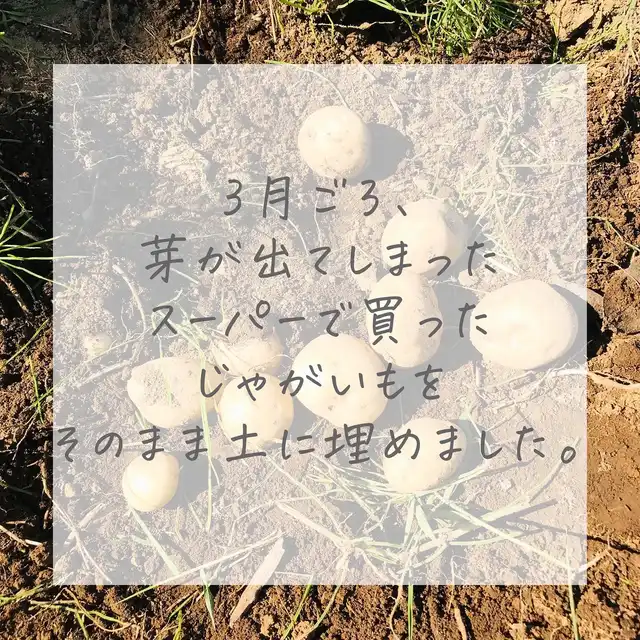 3月ごろ、
芽が出てしまった
スーパーで買った
じゃがいもを
そのまま土に埋めました。